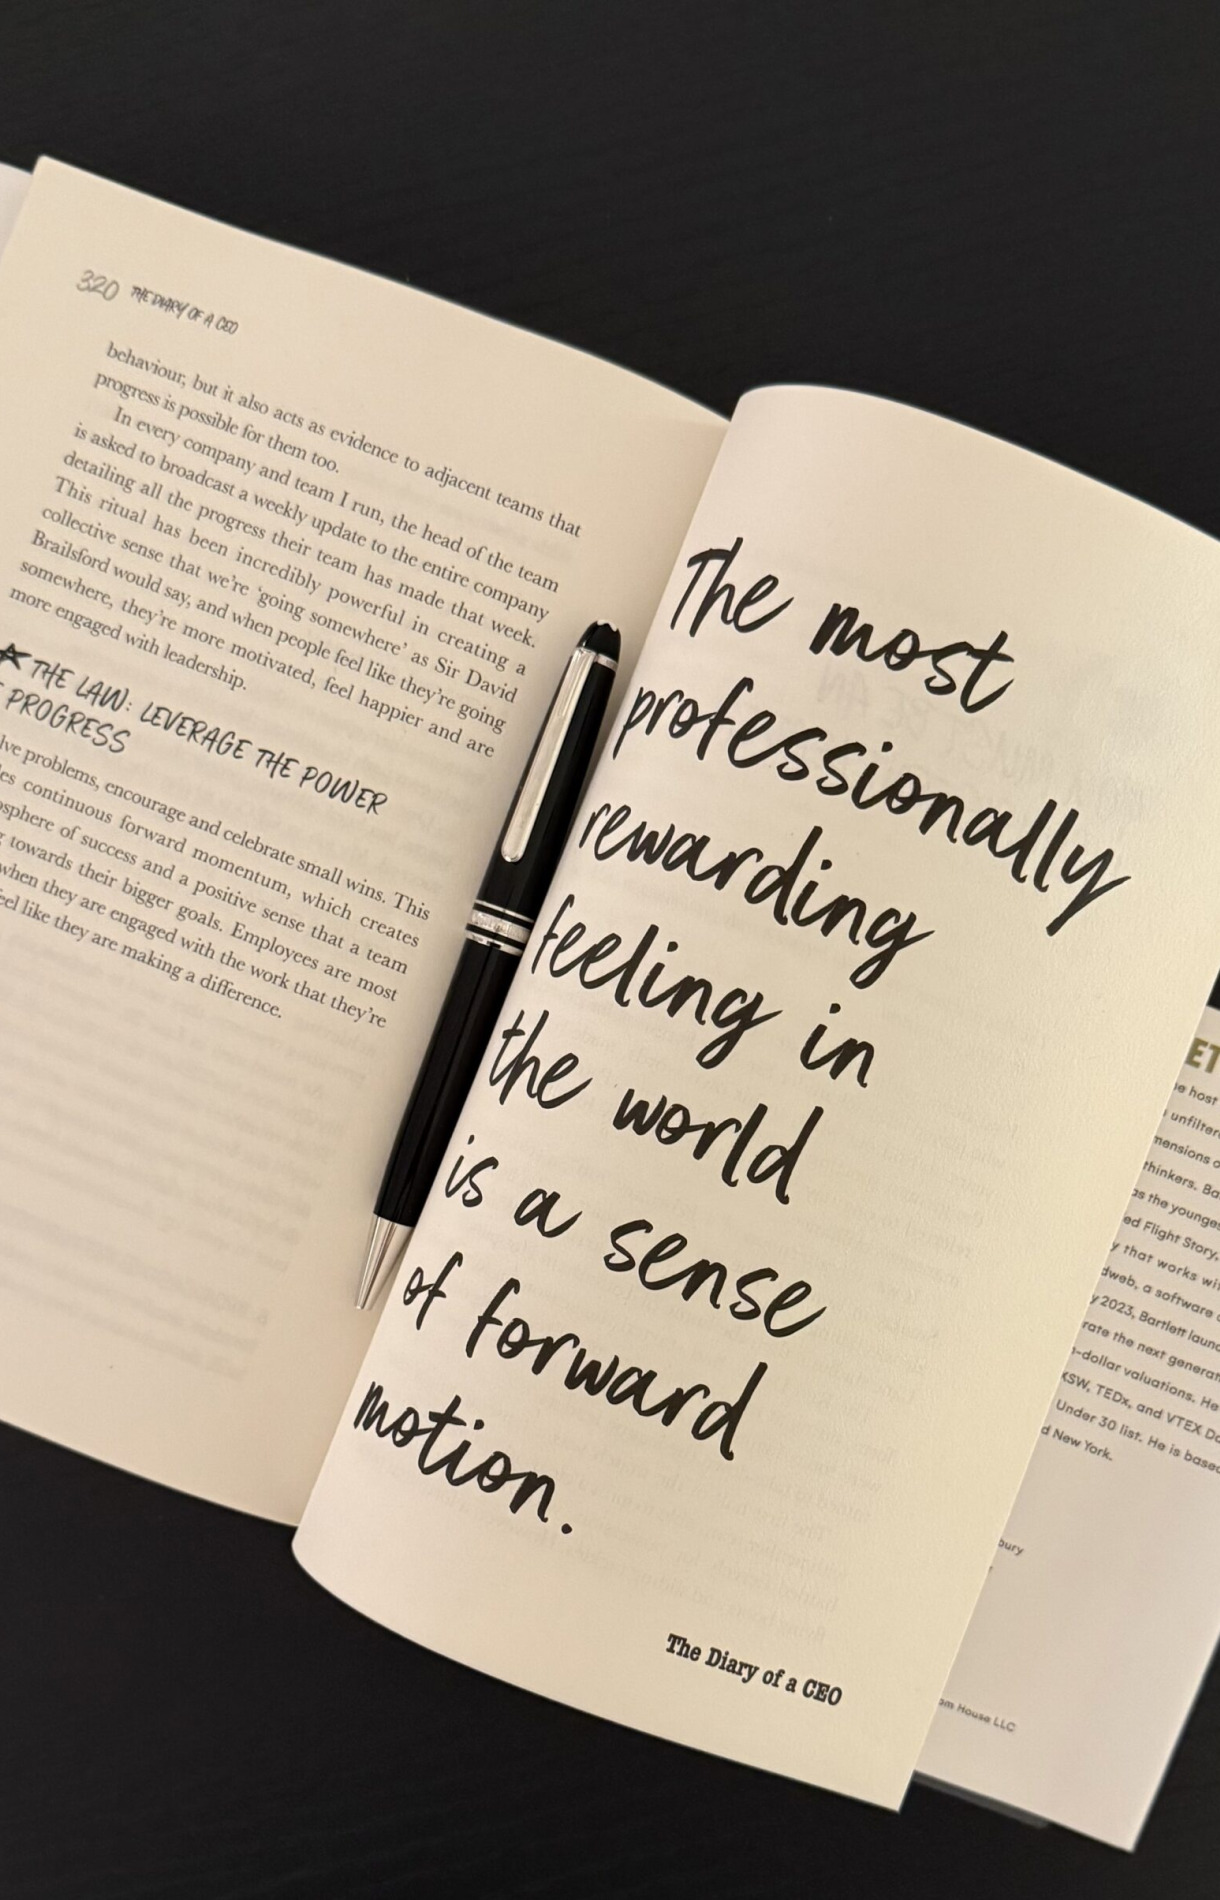 320 THE DIARY OF A CEO
behaviour, but it also acts as evidence to adjacent teams that
progress is possible for them too.
In every company and team I run, the head of the team
is asked to broadcast a weekly update to the entire company
detailing all the progress their team has made that week.
This ritual has been incredibly powerful in creating a
collective sense that we're 'going somewhere' as Sir David
Brailsford would say, and when people feel like they're going
somewhere, they're more motivated, feel happier and are
more engaged with leadership.
THE LAW: LEVERAGE THE POWER
PROGRESS
problems, encourage and celebrate small wins. This
continuous forward momentum, which creates
of success and a positive sense that a team
towards their bigger goals. Employees are most
when they are engaged with the work that they're
feel like they are making a difference.
The most
professionally
rewarding
feeling in
the world
is a sense
of forward
motion.
The Diary of a CEO
ET
host
unfiltere
mensions o
thinkers. Ba
as the younges
ed Flight Story,
y that works wi
dweb, a software
y 2023, Bartlett laun
rate the next generat
-dollar valuations. He
XSW, TEDx, and VTEX Da
Under 30 list. He is based
d New York.
bury
om House LLC